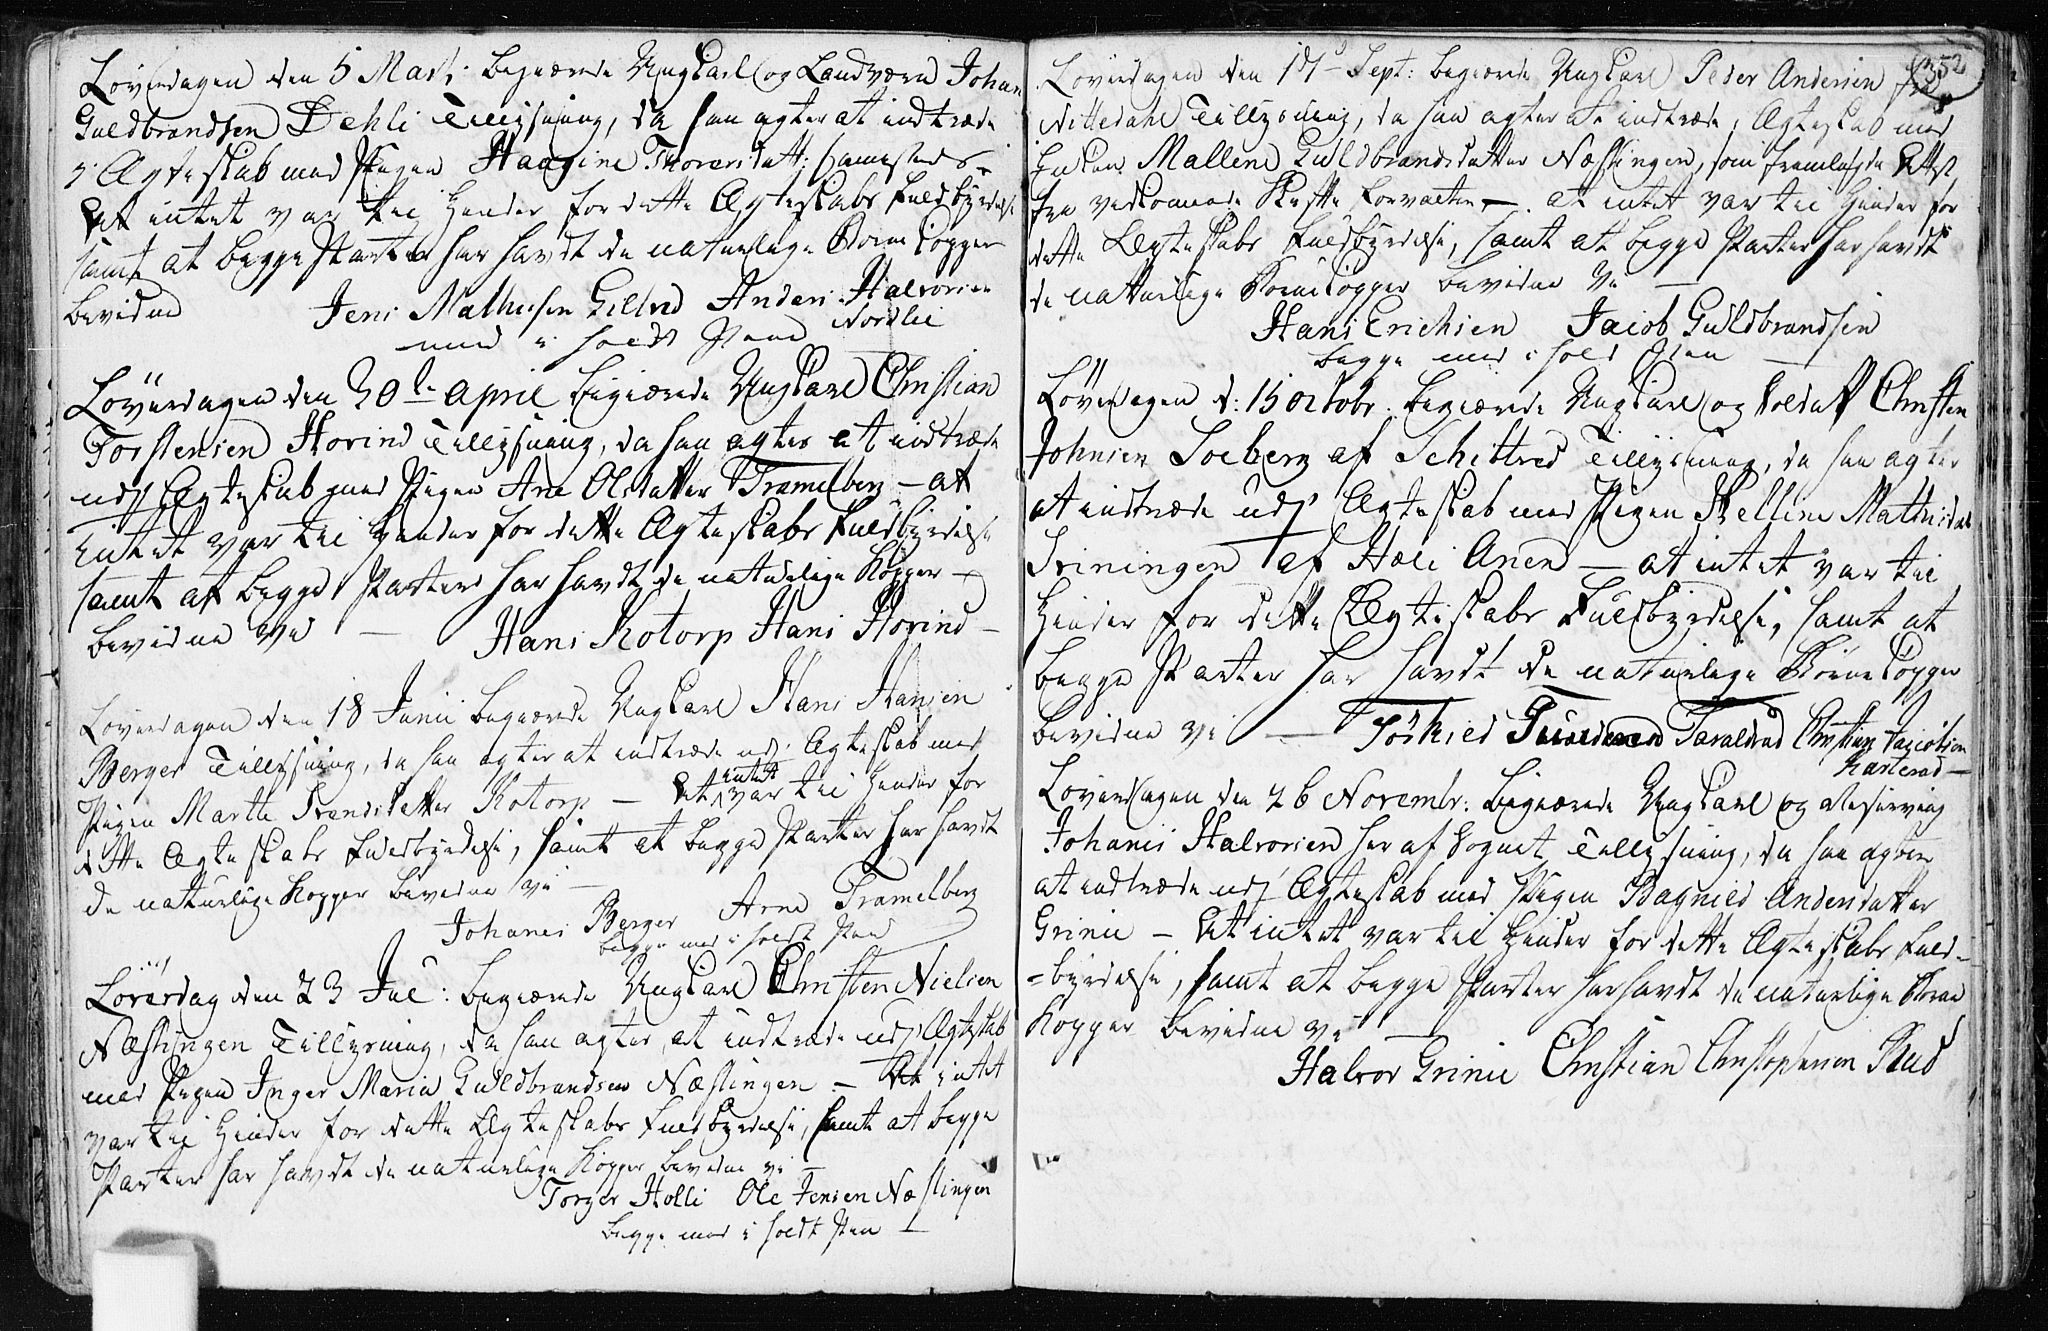 Löverdagen den 5 Marti: begiærede Ungkarl og Landværn Johan
Guldbrandsen Dehli Tillysning, da han agter at indtræde
i Ægteskab med Pigen Haagine Thorersdatt: sammesteds –
At intet var til Hinder for dette Ægteskabs Fuldbyrdelse
samt at begge Parter har havdt de naturlige Börne Kopper
bevidne Jens Mathesen Gillrud Anders Halvorsen
Nordlie
med i holdt Pend
Löverdagen den 30te April begiærede Ungkarl Christian
Torstensen Horind Tillysning, da han agter at indtræde
udj Ægteskab med Pigen Ane Olsdatter Tramelberg – at
intet var til Hinder for dette Ægteskabs Fuldbyrdelse
samt at begge Parter har havdt de naturlige Kopper –
bevidne vi – Hans Kotorp Hans Horind –
Löverdagen den 18 Junii begiærede Ungkarl Hans Hansen
Berger Tillysning, da han agter at indtræde udj Ægteskab med
Pigen Marthe Trondsdatter Kotorp – At intet var til Hinder for
dette Ægteskabs Fuldbyrdelse, samt at begge Parter har havdt
de naturlige Kopper bevidne vi –
Johanes Berger Arne Tramelberg
begge med i holdt Pen
Löverdag den 23 Jul: begiærede Ungkarl Christen Nielsen
Næslingen Tillysning, da han agter at indtræde udj Ægteskab
med Pigen Inger Maria Guldbrandsen Næslingen – At intet
var til Hinder for dette Ægteskabs Fuldbyrdelse, samt at begge
Parter har havdt de naturlige Kopper bevidne vi –
Torger Holli Ole Jensen Næslingen
begge med i holdt Pen –
352
Löverdagen den 17d Sept: begiærede Ungkarl Peder Andersen fra
Nittedahl Tillysning, da han agter at indtræde i Ægteskab med
Enken Mallene Guldbrandsdatter Næslingen, som fremlagde Attest
fra vedkomende Skifte Forvalter – at intet var til Hinder for
dette Ægteskabs Fuldbyrdelse, samt at begge Parter har havdt
de naturlige Börne Kopper bevidne vi –
Hans Erichsen Jacob Guldbrandsen
begge med i hold Pen –
Löverdagen d: 15 Octobr: begiærede Ungkarl og Soldatt Christen
Johnsen Soeberg af Schittred Tillysning, da han agter
at indtræde udj Ægteskab med Pigen Pelline Mathisdatt
Sriningen af Høli Anen – at intet var til
Hinder for dette Ægteskabs Fuldbyrdelse, samt at
begge Parter har havdt de naturlige Börne Kopper
bevidne vi – Törkild Taraldrud Christian Jacobsen
Karterud –
Löverdagen den 26 Novembr: begiærede Ungkarl og Reserving
Johanes Halvorsen her af Sognet Tillysning, da han agter
at indtræde udj Ægteskab med Pigen Ragnild Andersdatter
Grinie – At intet var til Hinder for dette Ægteskabs Fuld-
-byrdelse, samt at begge Parter har havdt de naturlige Börne
Kopper bevidne vi –
Halvor Grinie Christian Christophersen Rud